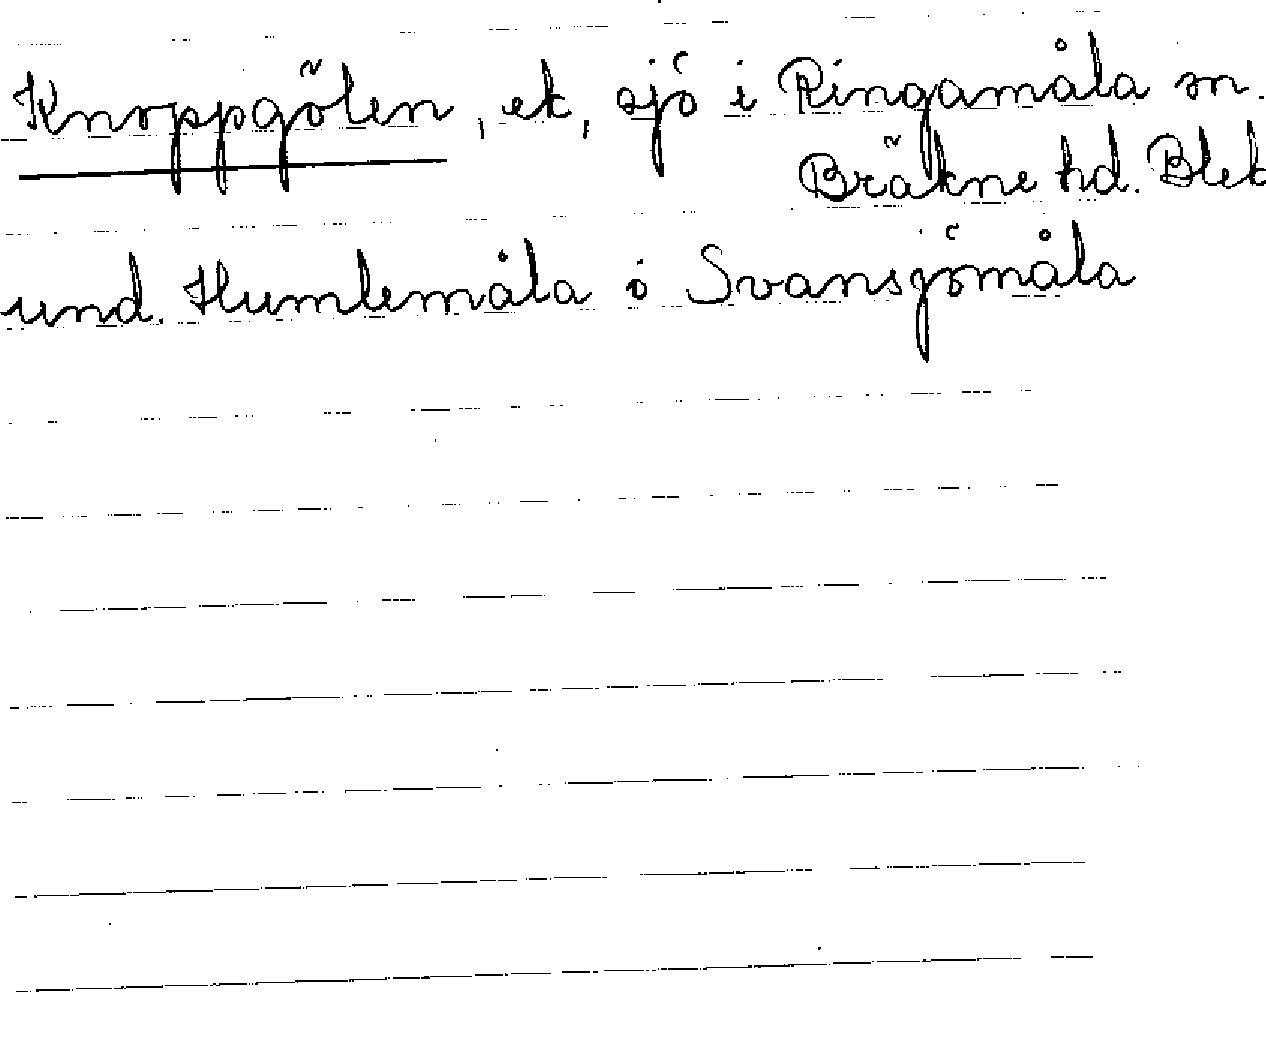 Knoppgölen, ek, sjö i Ringamåla sn.
Bräkne hd. Blek
und. Humlemåla o Svansjömåla